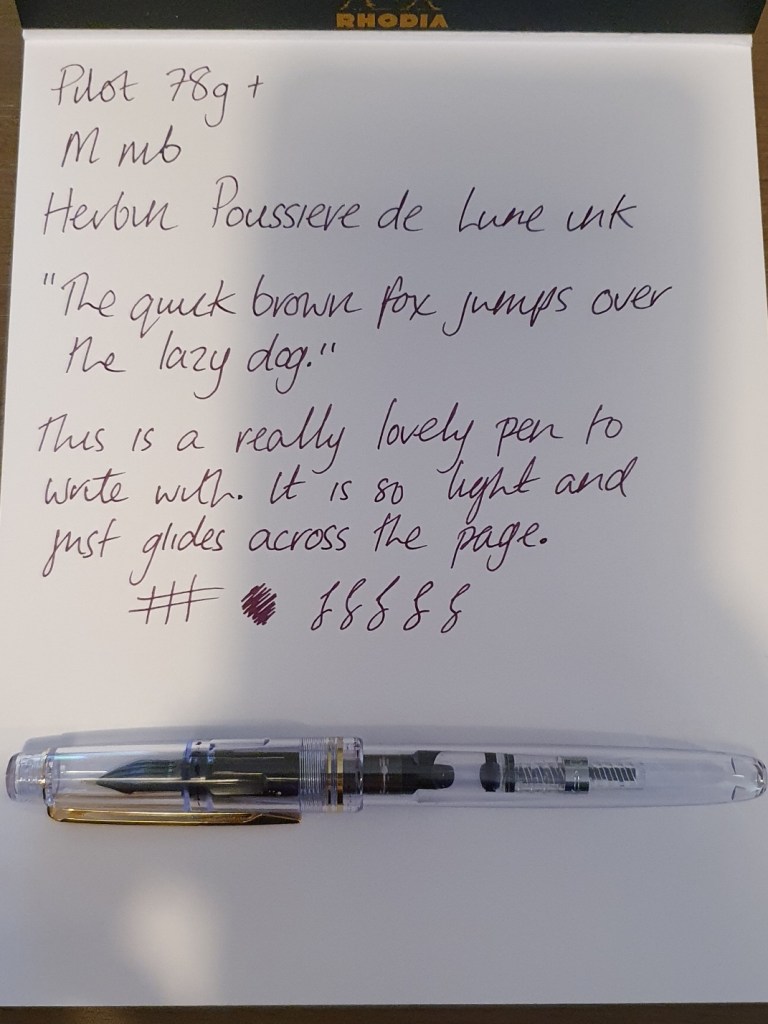 RHODIA
Pilot 78g +
M nib
Herbin Poussiere de Lune ink
"The quick brown fox jumps over
the lazy dog."
This is a really lovely pen to
write with. It is so light and
just glides across the page.